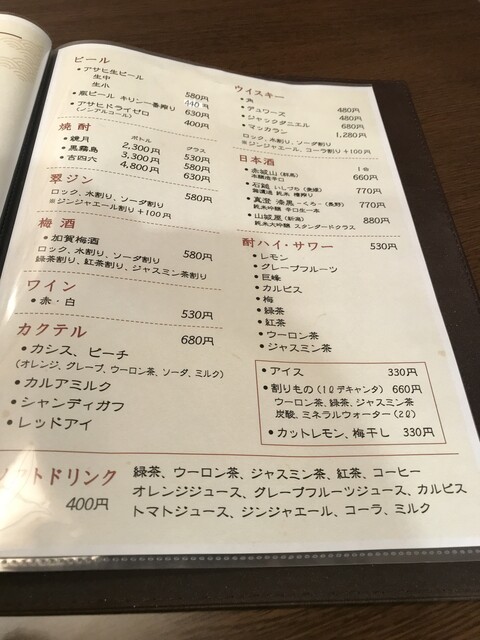 ビール
• アサヒ生ビール
生中 580円
生小 440円
• 瓶ビール キリン一番搾り 630円
• アサヒドライゼロ 400円
(ノンアルコール)
焼酎 ボトル グラス
• 鏡月 2,300円 500円
• 黒霧島 3,300円 530円
• 吉四六 4,800円 580円
翠ジン
ロック、水割り、ソーダ割り 580円
※ジンジャエール割り+100円
梅酒
• 加賀梅酒
ロック、水割り、ソーダ割り 580円
緑茶割り、紅茶割り、ジャスミン茶割り
ワイン
• 赤・白 530円
カクテル 680円
• カシス、ピーチ
(オレンジ、グレープ、ウーロン茶、ソーダ、ミルク)
• カルアミルク
• シャンディガフ
• レッドアイ
ウイスキー
• 角 480円
• デュワーズ 480円
• ジャックダニエル 680円
• マッカラン 1,280円
ロック、水割り、ソーダ割り
※ジンジャエール、コーラ割り+100円
日本酒 1合
• 赤城山(群馬) 660円
本醸造辛口
• 石鎚 いしづち(愛媛) 770円
無濾過 純米 槽搾り
• 真澄 漆黒 −くろ−(長野) 770円
純米吟醸 辛口生一本
• 山城屋(新潟) 880円
純米大吟醸 スタンダードクラス
酎ハイ・サワー 530円
• レモン
• グレープフルーツ
• 巨峰
• カルピス
• 梅
• 緑茶
• 紅茶
• ウーロン茶
• ジャスミン茶
• アイス 330円
• 割りもの(1ℓデキャンタ) 660円
ウーロン茶、緑茶、ジャスミン茶
炭酸、ミネラルウォーター(2ℓ)
• カットレモン、梅干し 330円
ソフトドリンク
400円
緑茶、ウーロン茶、ジャスミン茶、紅茶、コーヒー
オレンジジュース、グレープフルーツジュース、カルピス
トマトジュース、ジンジャエール、コーラ、ミルク